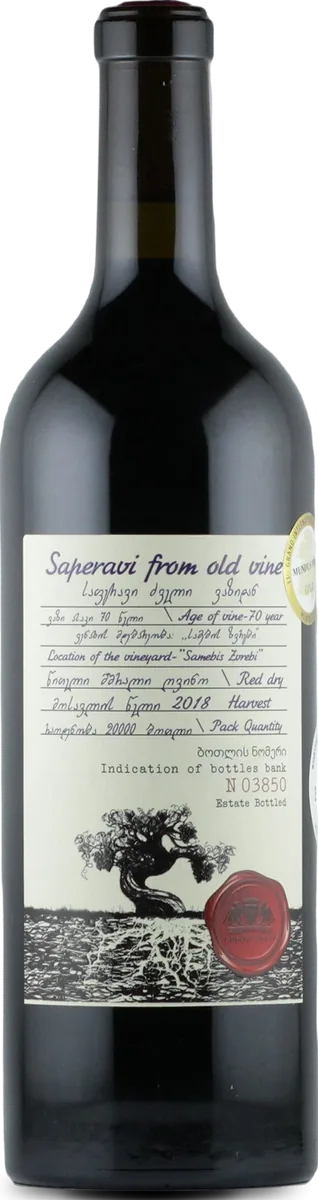 Saperavi from old vine
საფერავი ძველი ვაზიდან
70 წელი \ Age of vine-70 year
Location of the vineyard-"Samebis Zvrebi"
წითელი მშრალი ღვინო \ Red dry
მოსავლის წელი 2018 Harvest
რაოდენობა 20000 ბოთლი \ Pack Quantity
ბოთლის ნომერი
Indication of bottles bank
N 03850
Estate Bottled